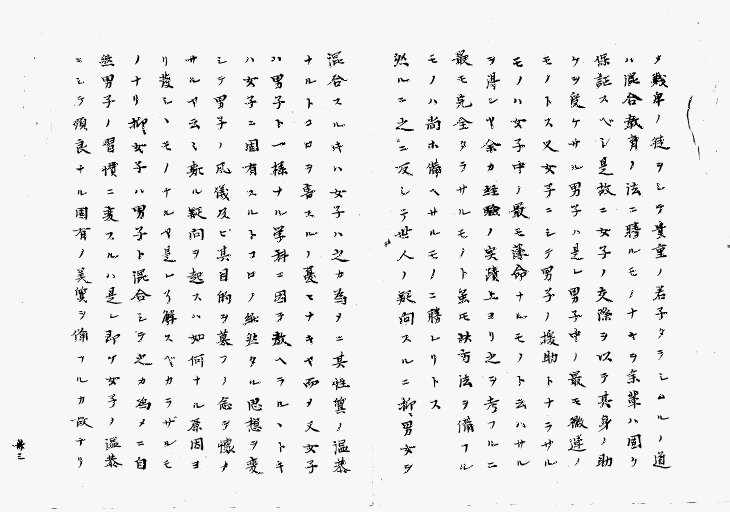 タ戝帛ノ徒ヲシテ貴重ノ君子タラシムルノ道
ハ混合教育ノ法ニ勝ルモノナキヲ余輩ハ固ク
保証スベシ是故ニ女子ノ交際ヲ以テ其身ノ助
ケヲ受ケサル男子ハ是レ男子中ノ最モ微運ノ
モノトス又女子ニシテ男子ノ援助トナラサル
モノハ女子中ノ最モ薄命ナルモノト云ハサル
ヲ得ンヤ余カ経験ノ実蹟上ヨリ之ヲ考フルニ
最モ完全タラサルモノト雖モ此方法ヲ備フル
モノハ尚ホ備ヘサルモノニ勝レリトス
然ルニ之ニ反シテ世人ノ疑問スルニ抑男女ヲ
混合スルキハ女子ハ之カ為メニ其性質ノ温恭
ナルトコロヲ喜スルノ憂ヒナキヤ而メ又女子
ハ男子ト一様ナル学科ニ因テ教ヘラルヽトキ
ハ女子ニ固有スルトコロノ純然タル思想ヲ変
シテ男子ノ風儀及ビ其目的ヲ慕フノ念ヲ懐カ
サルヤ云々斯ル疑問ヲ起スハ如何ナル原因ヨ
リ発シヽモノナルヤ是レ了解スベカラザルモ
ノナリ抑女子ハ男子ト混合シテ之カ為メニ自
然男子ノ習慣ニ変スルハ是レ即ケ女子ノ温恭
ニシテ順良ナル固有ノ美質ヲ備フルカ故ナリ